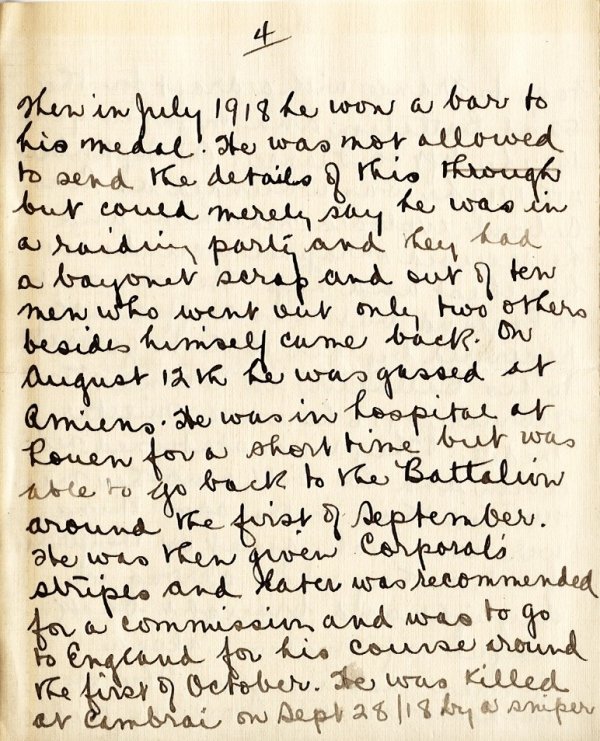 4
Then in July 1918 he won a bar to
his medal. He was not allowed
to send the details of this through
but could merely say he was in
a raiding party and they had
a bayonet scrap and out of ten
men who went out only two others
besides himself came back. On
August 12th he was gassed at
Amiens. He was in hospital at
Rouen for a short time but was
able to go back to the Battalion
around the first of September.
He was then given Corporal's
stripes and later was recommended
for a commission and was to go
to England for his course around
the first of October. He was killed
at Cambrai on Sept 28/18 by a sniper